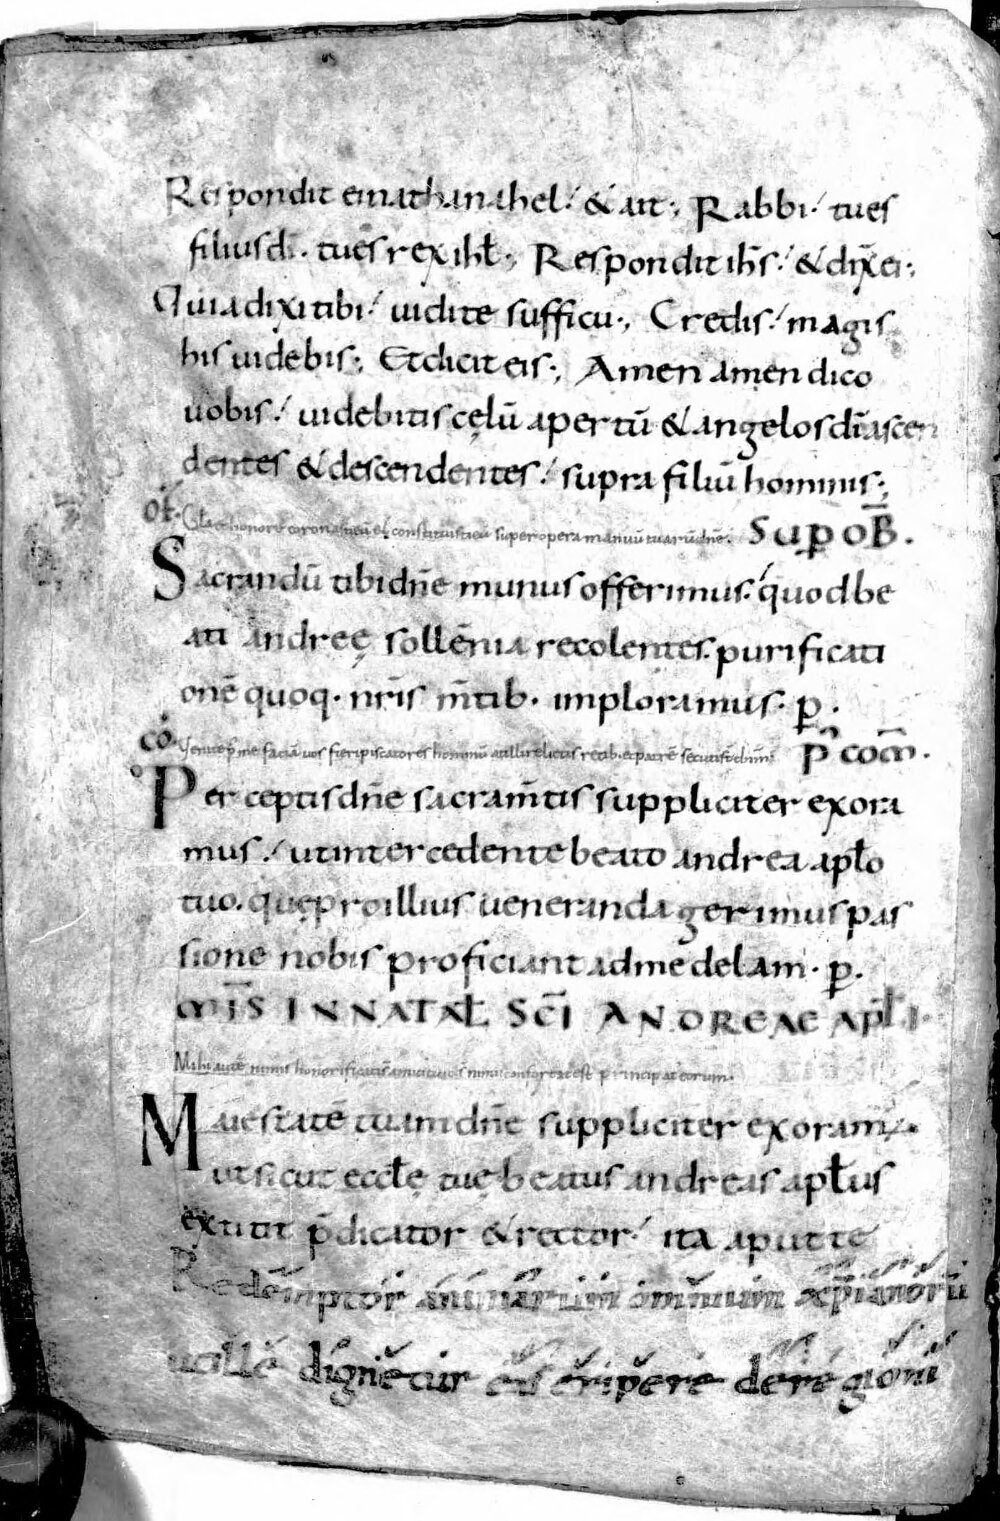 Respondit ei nathanahel. & ait; Rabbi. tu es
filius dī. tu es rex ihł; Respondit ihs̄. & dix̄ ei;
Quia dixi tibi. uidi te sub ficu; Credis. magis
his uidebis; Et dicit eis; Amen amen dico
uobis. uidebitis cęlū apertū & angelos dī ascen
dentes & descendentes. supra filiū hominis;
Of. Gła & honore coronasti eū et constituisti eū super opera manuū tuarū dnē. SUP OB̄.
Sacrandū tibi dnē munus offerimus. quod be
ati andreę sollēnia recolentes. purificati
onē quoq. nr̄is m̄tib. imploramus. p̄.
cō. Uenite p̄ me faciā uos fieri piscatores hominū at illi relictis retib. et patrē secuti st̄ dn̄m P̄ COM̄.
Perceptis dnē sacram̄tis suppliciter exora
mus. ut intercedente beato andrea apło
tuo. quę pro illius ueneranda gerimus pas
sione nobis proficiant ad medelam. p̄.
MIS̄ IN NATAŁ SC̄I ANDREAE APŁI.
Mihi autē nimis honorificati s̄ amici tui ds̄ nimis confortat est principat eorum.
Maiestatē tuam dnē suppliciter exoram.
ut sicut eccłę tuę beatus andreas apłus
extitit p̄dicator & rector. ita aput te
Redemptor animarum omnium xp̄ianorū
uelle dignetur eis eripere de regioni